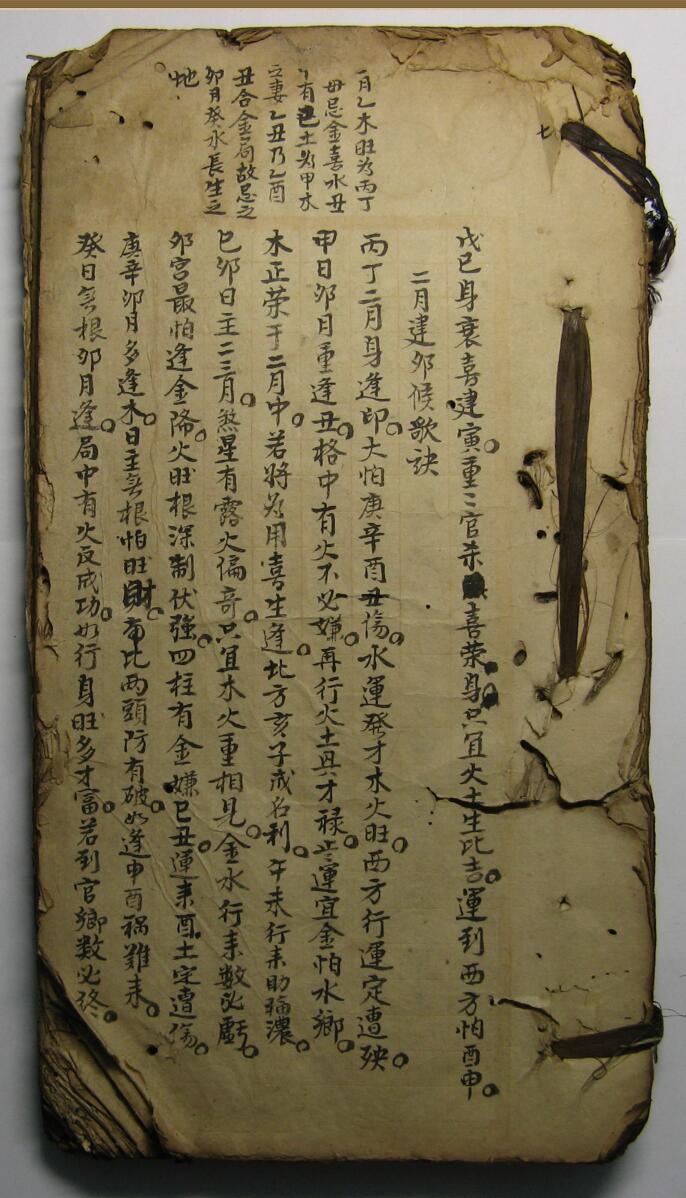 七
一月乙木旺为丙丁
毋忌金喜水丑
有己土为甲木
之妻乙丑乃乙酉
丑合金局故忌之
卯月癸水長生之
地
戊己身衰喜建寅重〻官杀喜荣身只宜火土生比吉運到西方怕酉申
二月建卯候歌诀
丙丁二月身逢印大怕庚辛酉丑傷水運發才水火旺西方行運定遭殃
甲日卯月重逢丑格中有火不必嫌再行火土興才禄正運宜金怕水鄉
木正荣于二月中若将为用喜生逢北方亥子成名利午未行来助福濃
己卯日主二三月煞星有露火偏奇只宜木火重相見金水行来数必虧
卯宫最怕逢金降火旺根深制伏強四柱有金嫌巳丑運来酉土定遭傷
庚辛卯月多逢木日主无根怕旺財市比两頭防有破如逢申酉祸難来
癸日无根卯月逢局中有火反成功如行身旺多才富若到官鄉数必终